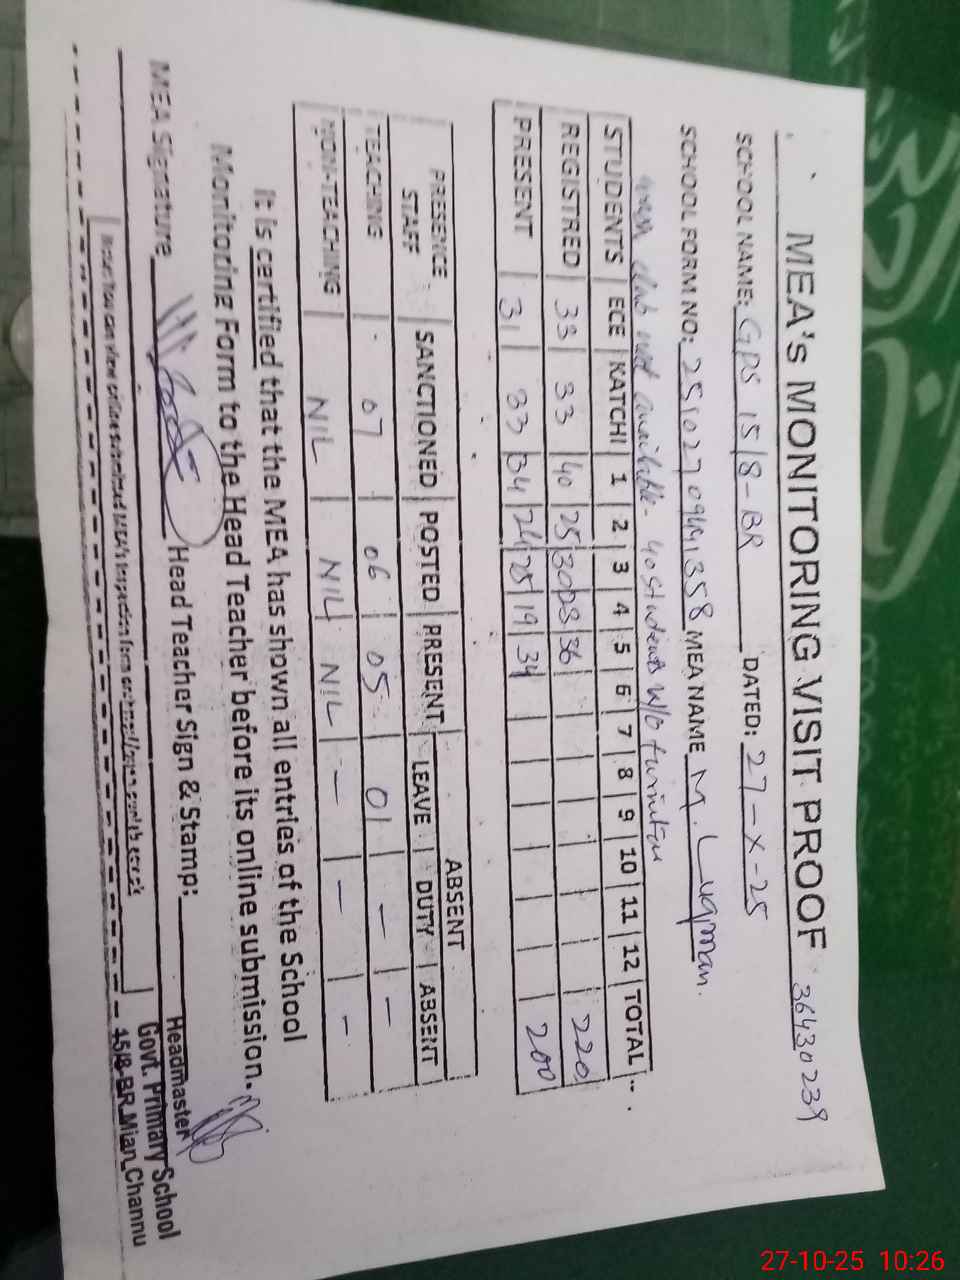 MEA's MONITORING VISIT PROOF 36430239
SCHOOL NAME: GPS 15/8-BR DATED: 27-X-25
SCHOOL FORM NO: MEA NAME M. Luqman.
club not available. 40 students w/o furniture
STUDENTS ECE KATCHI 1 2 3 4 5 6 7 8 9 10 11 12 TOTAL
REGISTRED 33 33 40 25 30 36 220
PRESENT 31 33 34 24 25 19 34 200
PRESENCE ABSENT
STAFF SANCTIONED POSTED PRESENT LEAVE DUTY ABSENT
TEACHING 07 06 05 01 - -
NON-TEACHING NIL NIL NIL - - -
It is certified that the MEA has shown all entries of the School
Monitoring Form to the Head Teacher before its online submission.
MEA Signature Head Teacher Sign & Stamp:
Headmaster
Govt. Primary School
15/8-BR Mian Channu
27-10-25 10:26